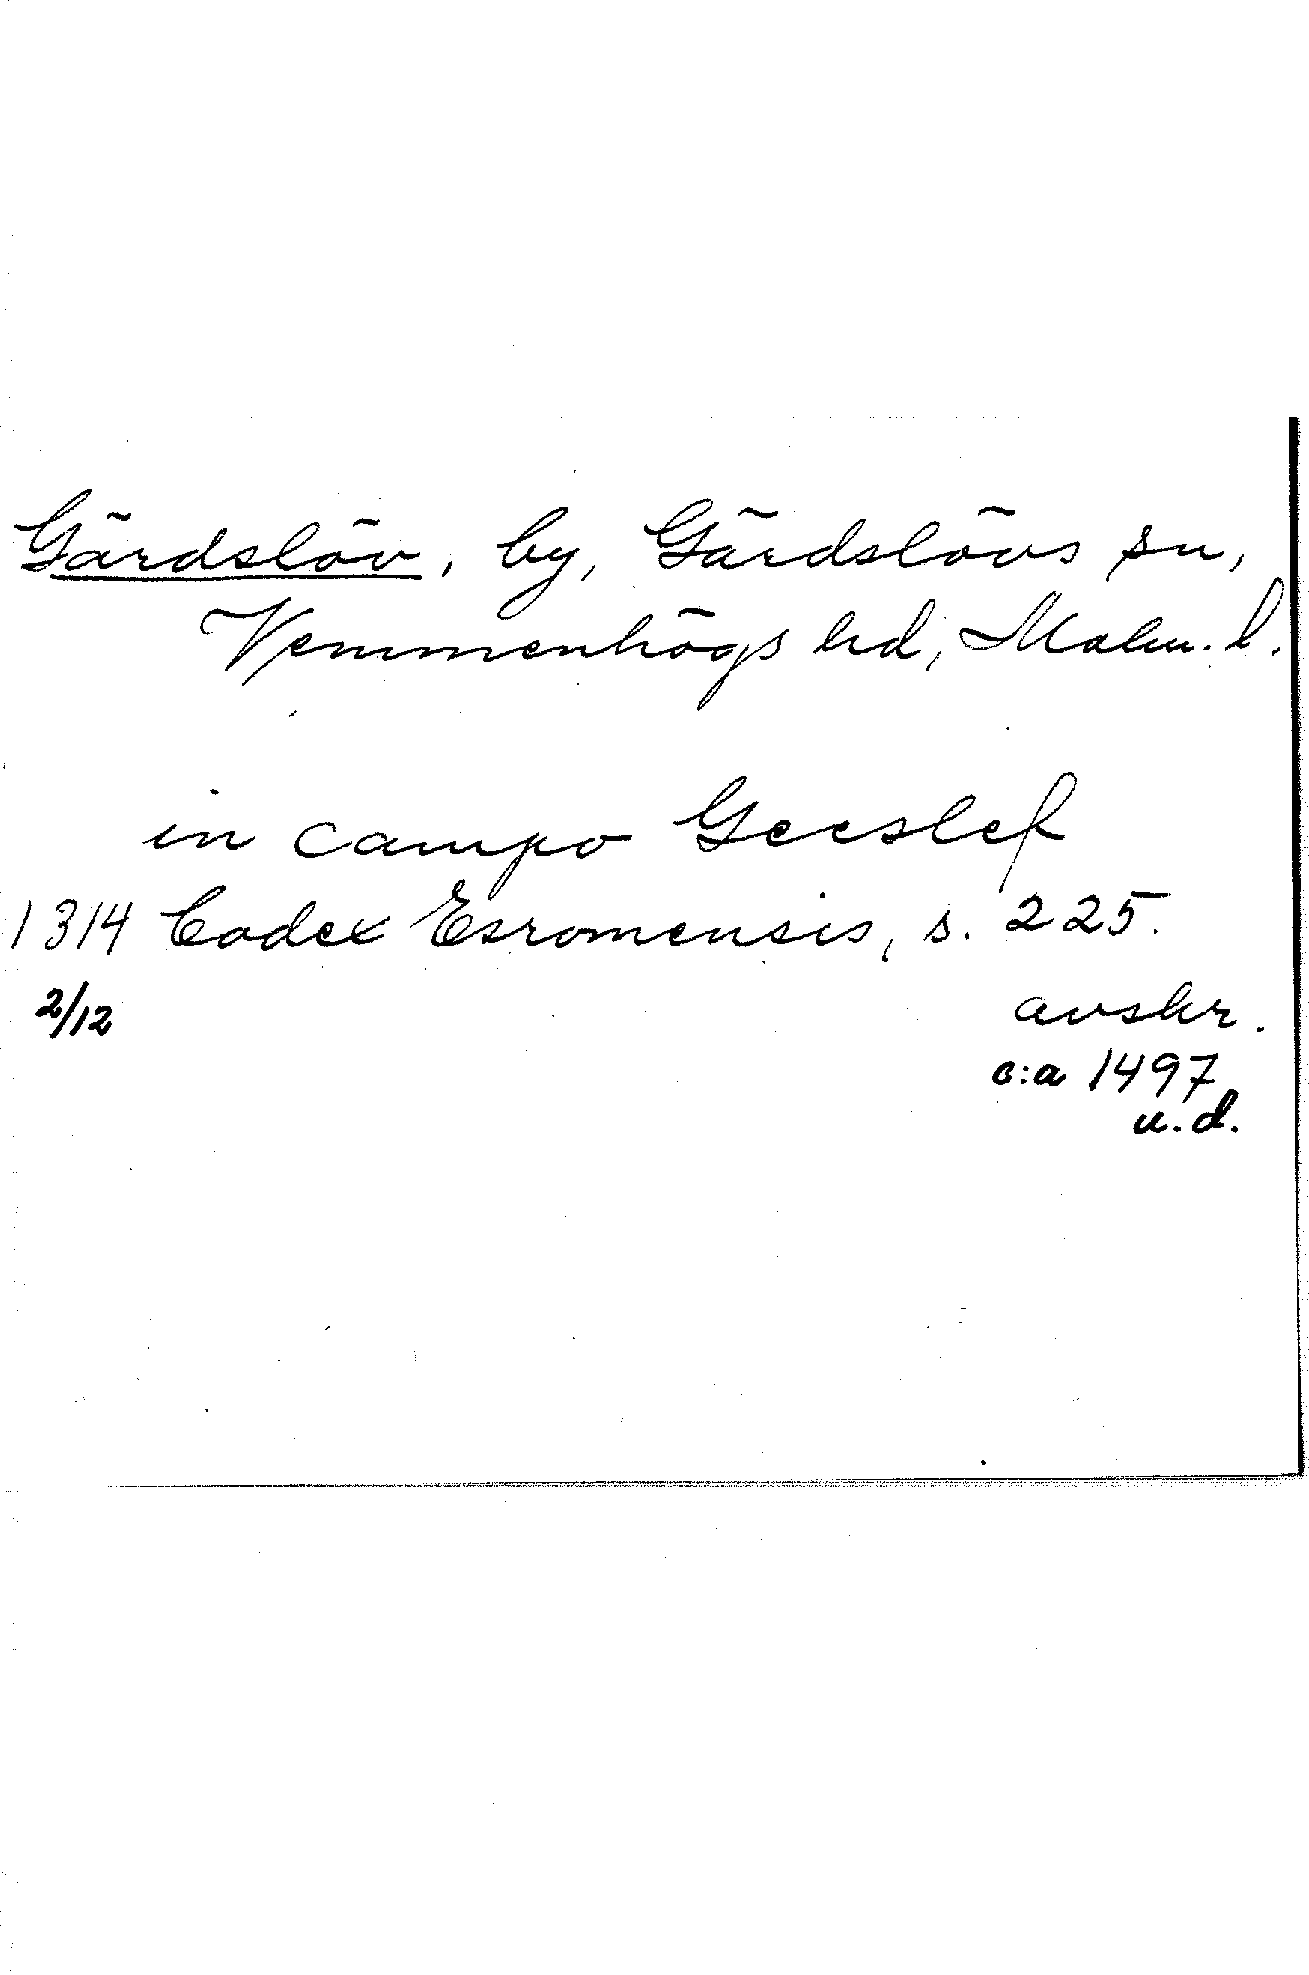 Gärdslöv, by, Gärdslövs sn,
Vemmenhögs hd, Malm. l.
in campo Geeslef
1314 Codex Esromensis, s. 225.
2/12 avskr.
c:a 1497
u.d.